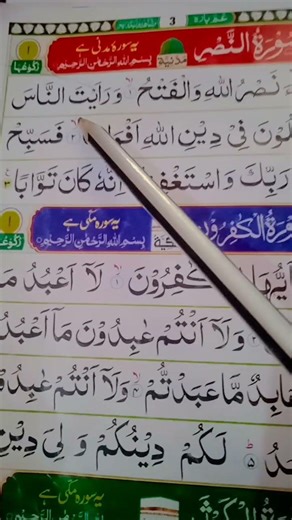 3
سُوْرَةُ النَّصْر مَدَنِيَّة یہ سورہ مدنی ہے
بِسْمِ اللهِ الرَّحْمٰنِ الرَّحِيْمِ
نَصْرُ اللهِ وَالْفَتْحُ ۙ۱ وَرَاَيْتَ النَّاسَ
لُوْنَ فِيْ دِيْنِ اللهِ فَسَبِّحْ
رَبِّكَ وَاسْتَغْفِرْ اِنَّهٗ كَانَ تَوَّابًا ۳
الْكٰفِرُوْنَ یہ سورہ مکی ہے
بِسْمِ اللهِ الرَّحْمٰنِ الرَّحِيْمِ
لَاۤ اَعْبُدُ مَا
وَلَاۤ اَنْتُمْ عٰبِدُوْنَ مَاۤ اَعْبُدُ
مَّا عَبَدْتُّمْ ۙ۴ وَلَاۤ اَنْتُمْ عٰبِدُوْ
لَكُمْ دِيْنُكُمْ وَلِيَ دِيْنِ
یہ سورہ مکی ہے